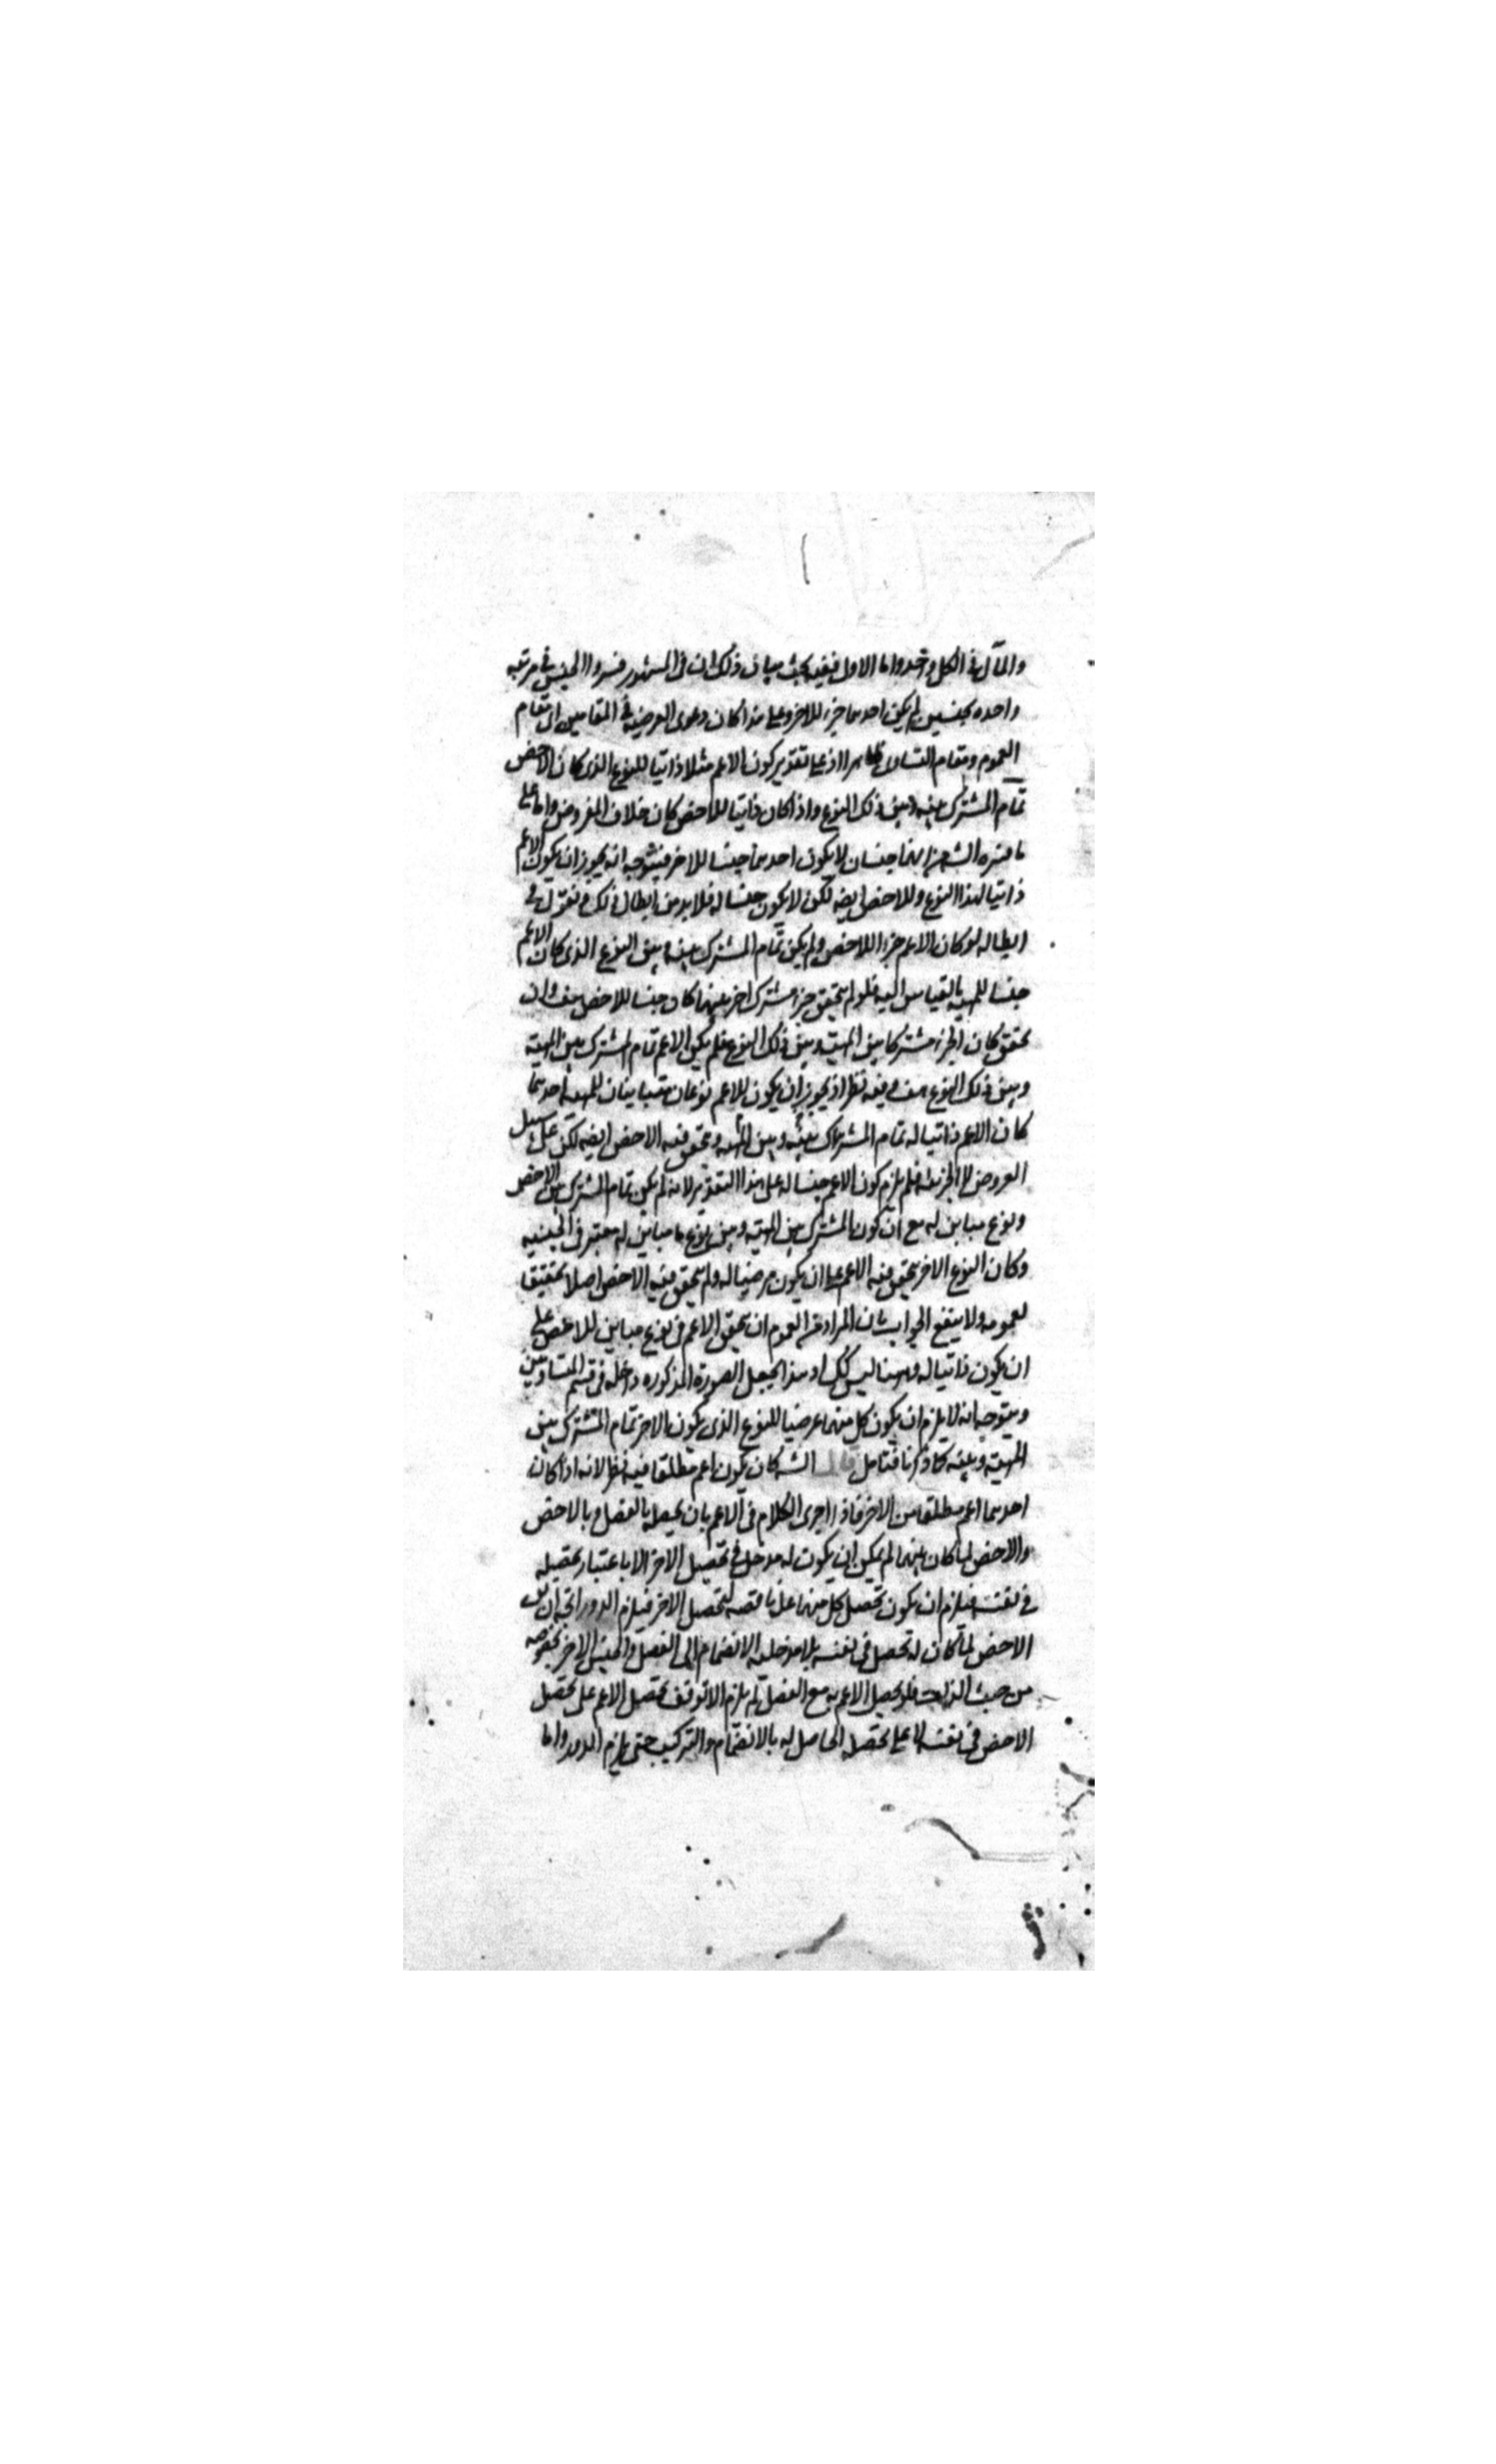 والمآل في الكل واحد واما الاول ففيه بحث بيان ذلك ان في المشهور فسروا الجنسين في مرتبة
واحده بجنسين لم يكن احدهما جزء للاخر وعلى هذا كان دعوى العرضية في المقامين اي مقام
العموم ومقام التساوي ظاهرا اذ على تقدير كون الاعم مثلا ذاتيا للنوع الذي كان الاخص
تمام المشترك بينه وبين ذلك النوع واذا كان ذاتيا للاخص كان خلاف المفروض واما على
ما فسره الشه من انهما جنسان لا يكون احدهما جنسا للاخر فيتوجه انه يجوز ان يكون الاعم
ذاتيا لهذا النوع وللاخص ايضه لكن لا يكون جنسا له فلابد من ابطال ذلك فنقول في
ابطاله لو كان الاعم جزءا للاخص ولم يكن تمام المشترك بينه وبين النوع الذي كان الاعم
جنسا للمهية بالقياس اليه فلو لم يتحقق جزء مشترك اخر بينهما كان جنسا للاخص هف وان
تحقق كان الجزء مشتركا بين المهية وبين ذلك النوع فلم يكن الاعم تمام المشترك بين المهية
وبين ذلك النوع هف وفيه نظر اذ يجوز ان يكون للاعم نوعان متباينان للمهية احدهما
كان الاعم ذاتيا له تمام المشترك بينه وبين المهية وتحقق فيه الاخص ايضه لكن على سبيل
العروض لا الجزئية فلم يلزم كون الاعم جنسا له على هذا التقدير لانه لم يكن تمام المشترك بين الاخص
ونوع مباين له مع ان كون المشترك بين المهية وبين نوع ما مباين له معتبر في الجنسية
وكان النوع الاخر يتحقق فيه الاعم على ان يكون عرضيا له ولم يتحقق فيه الاخص اصلا تحقيقا
لعمومه ولا ينفع الجواب بان المراد من العموم ان يتحقق الاعم في نوع مباين للاخص على
ان يكون ذاتيا له وههنا ليس كك اذ هذا يجعل الصورة المذكوره داخله في قسم المتساويين
ويتوجه انه لا يلزم ان يكون كل منهما عرضيا للنوع الذي يكون الاخر تمام المشترك بين
المهية وبينه كما ذكرنا فتامل قال الشه كان يكون اعم مطلقا فيه نظر لانه اذا كان
احدهما اعم مطلقا من الاخر فاذا اجرى الكلام في الاعم بان تحصله بالفصل وبالاخص
والاخص لما كان مبهما لم يمكن ان يكون له مدخل في تحصيل الاخر الا باعتبار تحصيله
في نفسه فيلزم ان يكون تحصل كل منهما علة ناقصه لتحصل الاخر فيلزم الدور اتجه ان يق
الاخص لما كان له تحصل في نفسه بلا مدخلية الانضمام الى الفصل والجنس الاخر بخصوصه
من حيث الذات فلو حصل الاعم به مع الفصل لم يلزم الا توقف تحصيل الاعم على تحصل
الاخص في نفسه لا على تحصله الحاصل له بالانضمام والتركيب حتى يلزم الدور واما